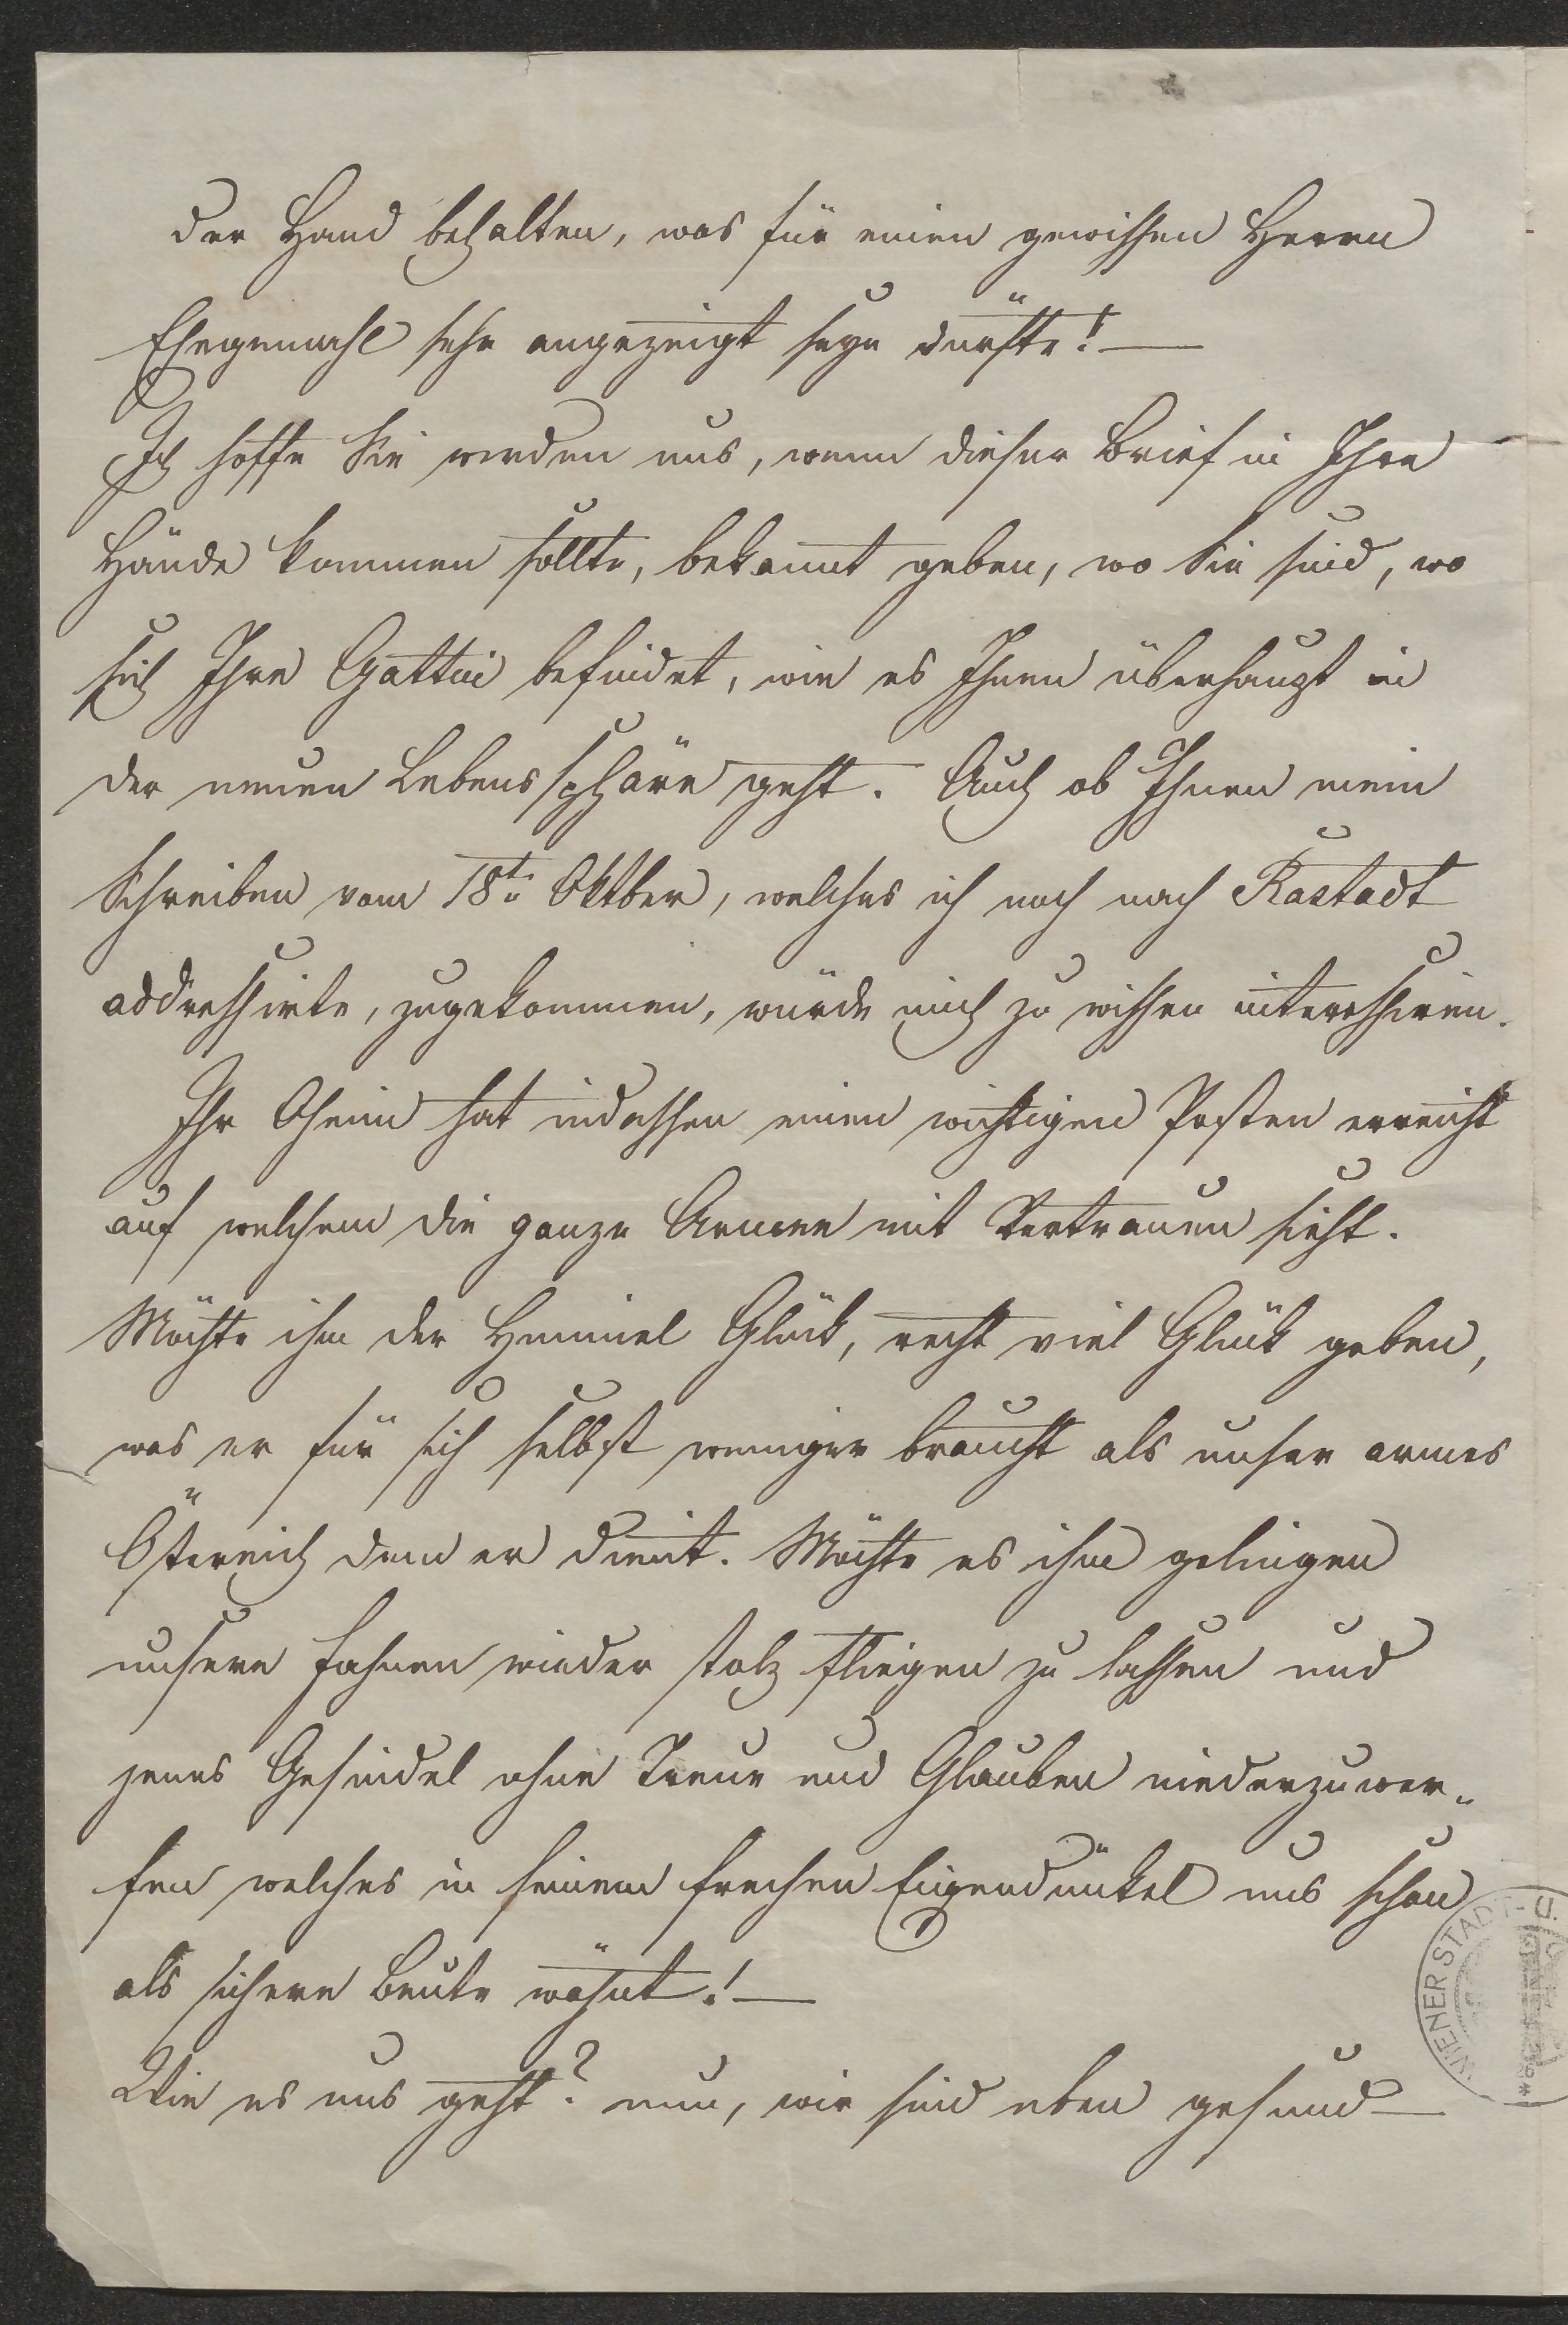 der Hand behalten, was für einen gewissen Herrn
Ehegemahl sehr angezeigt seyn dürfte! —
Ich hoffe Sie werden uns, wenn dieser Brief in Ihre
Hände kommen sollte, bekannt geben, wo Sie sind, wo
sich Ihre Gattin befindet, wie es Ihnen überhaupt in
der neuen Lebenssphäre geht. Auch ob Ihnen mein
Schreiben vom 18t. Oktber, welches ich noch nach Rastadt
addressirte, zugekommen, würde mich zu wissen interessiren.
Ihr Oheim hat indessen einen wichtigen Posten erreicht
auf welchem die ganze Armee mit Vertrauen sieht.
Möchte ihm der Himmel Glück, recht viel Glück geben,
was er für sich selbst weniger braucht als unser armes
Östereich dem er dient. Möchte es ihm gelingen
unsere Fahnen wieder stolz fliegen zu lassen und
jenes Gesindel ohne Treue und Glauben niederzuwer„
fen welches in seinem frechen Eigendünkel uns schon
als sichere Beute wähnt! —
Wie es uns geht? nun, wir sind eben gesund —
WIENER STADT- U.